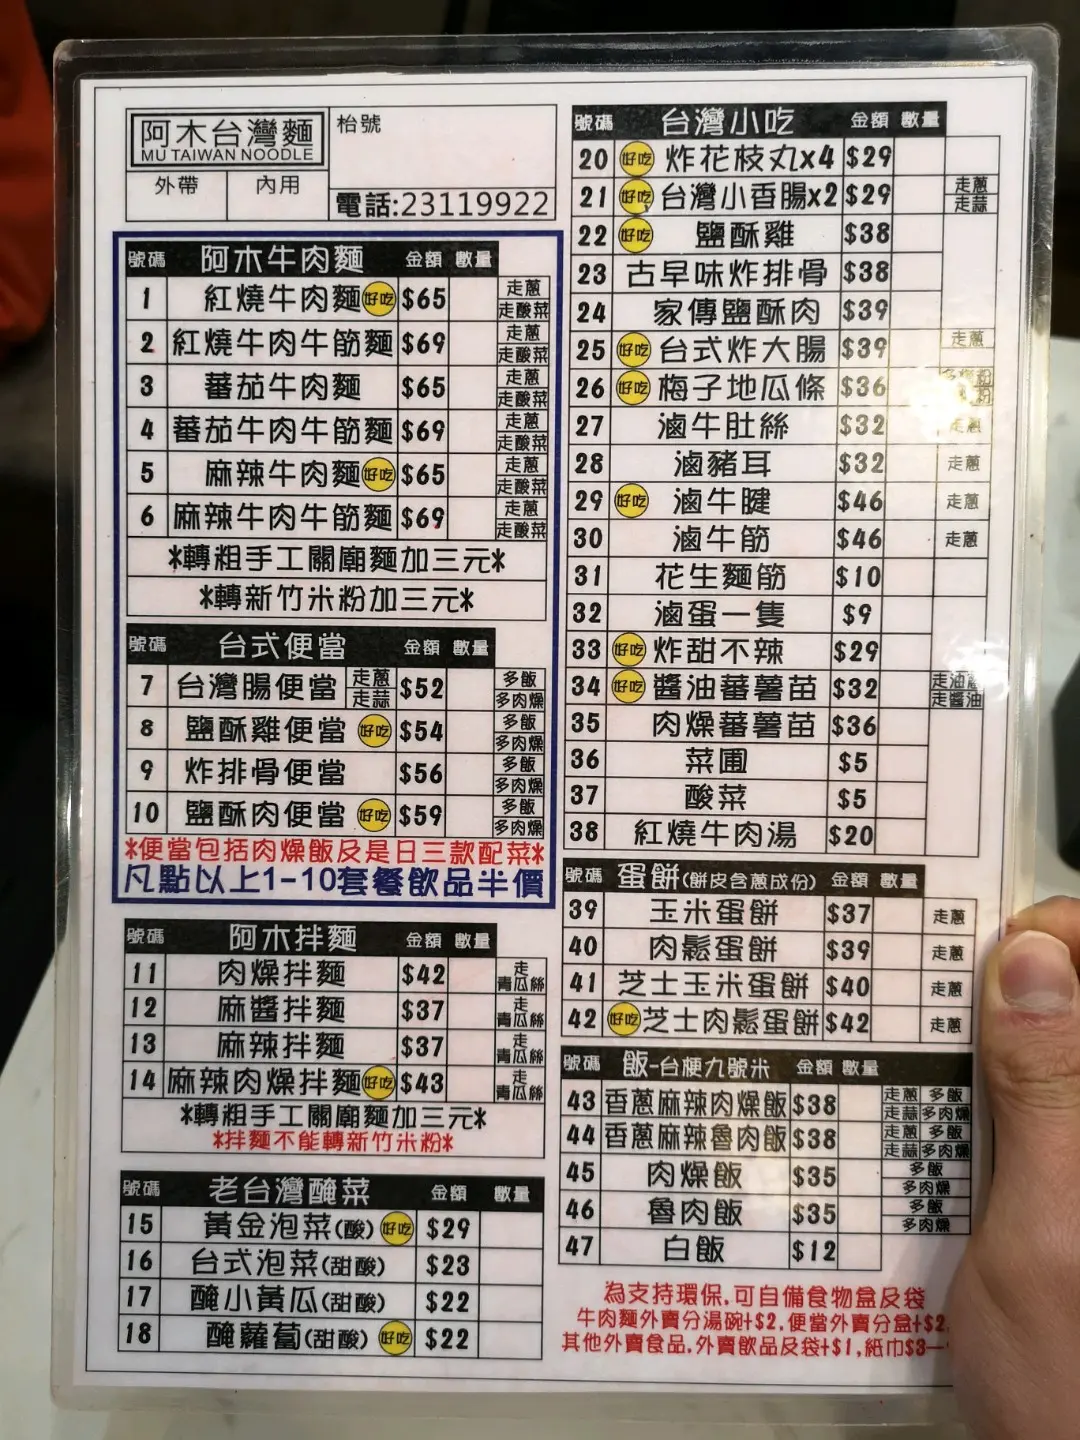 阿木台灣麵
MU TAIWAN NOODLE
枱號
外帶 內用
電話:23119922
號碼 阿木牛肉麵 金額 數量
1 紅燒牛肉麵 好吃 $65 走蔥 走酸菜
2 紅燒牛肉牛筋麵 $69 走蔥 走酸菜
3 蕃茄牛肉麵 $65 走蔥 走酸菜
4 蕃茄牛肉牛筋麵 $69 走蔥 走酸菜
5 麻辣牛肉麵 好吃 $65 走蔥 走酸菜
6 麻辣牛肉牛筋麵 $69 走蔥 走酸菜
*轉粗手工關廟麵加三元*
*轉新竹米粉加三元*
號碼 台式便當 金額 數量
7 台灣腸便當 走蔥 走蒜 $52 多飯 多肉燥
8 鹽酥雞便當 好吃 $54 多飯 多肉燥
9 炸排骨便當 $56 多飯 多肉燥
10 鹽酥肉便當 好吃 $59 多飯 多肉燥
*便當包括肉燥飯及是日三款配菜*
凡點以上1-10套餐飲品半價
號碼 阿木拌麵 金額 數量
11 肉燥拌麵 $42 走青瓜絲
12 麻醬拌麵 $37 走青瓜絲
13 麻辣拌麵 $37 走青瓜絲
14 麻辣肉燥拌麵 好吃 $43 走青瓜絲
*轉粗手工關廟麵加三元*
*拌麵不能轉新竹米粉*
號碼 老台灣醃菜 金額 數量
15 黃金泡菜(酸) 好吃 $29
16 台式泡菜(甜酸) $23
17 醃小黃瓜(甜酸) $22
18 醃蘿蔔(甜酸) 好吃 $22
號碼 台灣小吃 金額 數量
20 好吃 炸花枝丸x4 $29
21 好吃 台灣小香腸x2 $29 走蔥 走蒜
22 好吃 鹽酥雞 $38
23 古早味炸排骨 $38
24 家傳鹽酥肉 $39
25 好吃 台式炸大腸 $39 走蔥
26 好吃 梅子地瓜條 $36
27 滷牛肚絲 $32 走蔥
28 滷豬耳 $32 走蔥
29 好吃 滷牛腱 $46 走蔥
30 滷牛筋 $46 走蔥
31 花生麵筋 $10
32 滷蛋一隻 $9
33 好吃 炸甜不辣 $29
34 好吃 醬油蕃薯苗 $32 走油蔥 走醬油
35 肉燥蕃薯苗 $36
36 菜圃 $5
37 酸菜 $5
38 紅燒牛肉湯 $20
號碼 蛋餅(餅皮含蔥成份) 金額 數量
39 玉米蛋餅 $37 走蔥
40 肉鬆蛋餅 $39 走蔥
41 芝士玉米蛋餅 $40 走蔥
42 好吃 芝士肉鬆蛋餅 $42 走蔥
號碼 飯-台梗九號米 金額 數量
43 香蔥麻辣肉燥飯 $38 走蔥 多飯 走蒜 多肉燥
44 香蔥麻辣魯肉飯 $38 走蔥 多飯 走蒜 多肉燥
45 肉燥飯 $35 多飯 多肉燥
46 魯肉飯 $35 多飯 多肉燥
47 白飯 $12
為支持環保,可自備食物盒及袋
牛肉麵外賣分湯碗+$2,便當外賣分盒+$2,
其他外賣食品,外賣飲品及袋+$1,紙巾$3